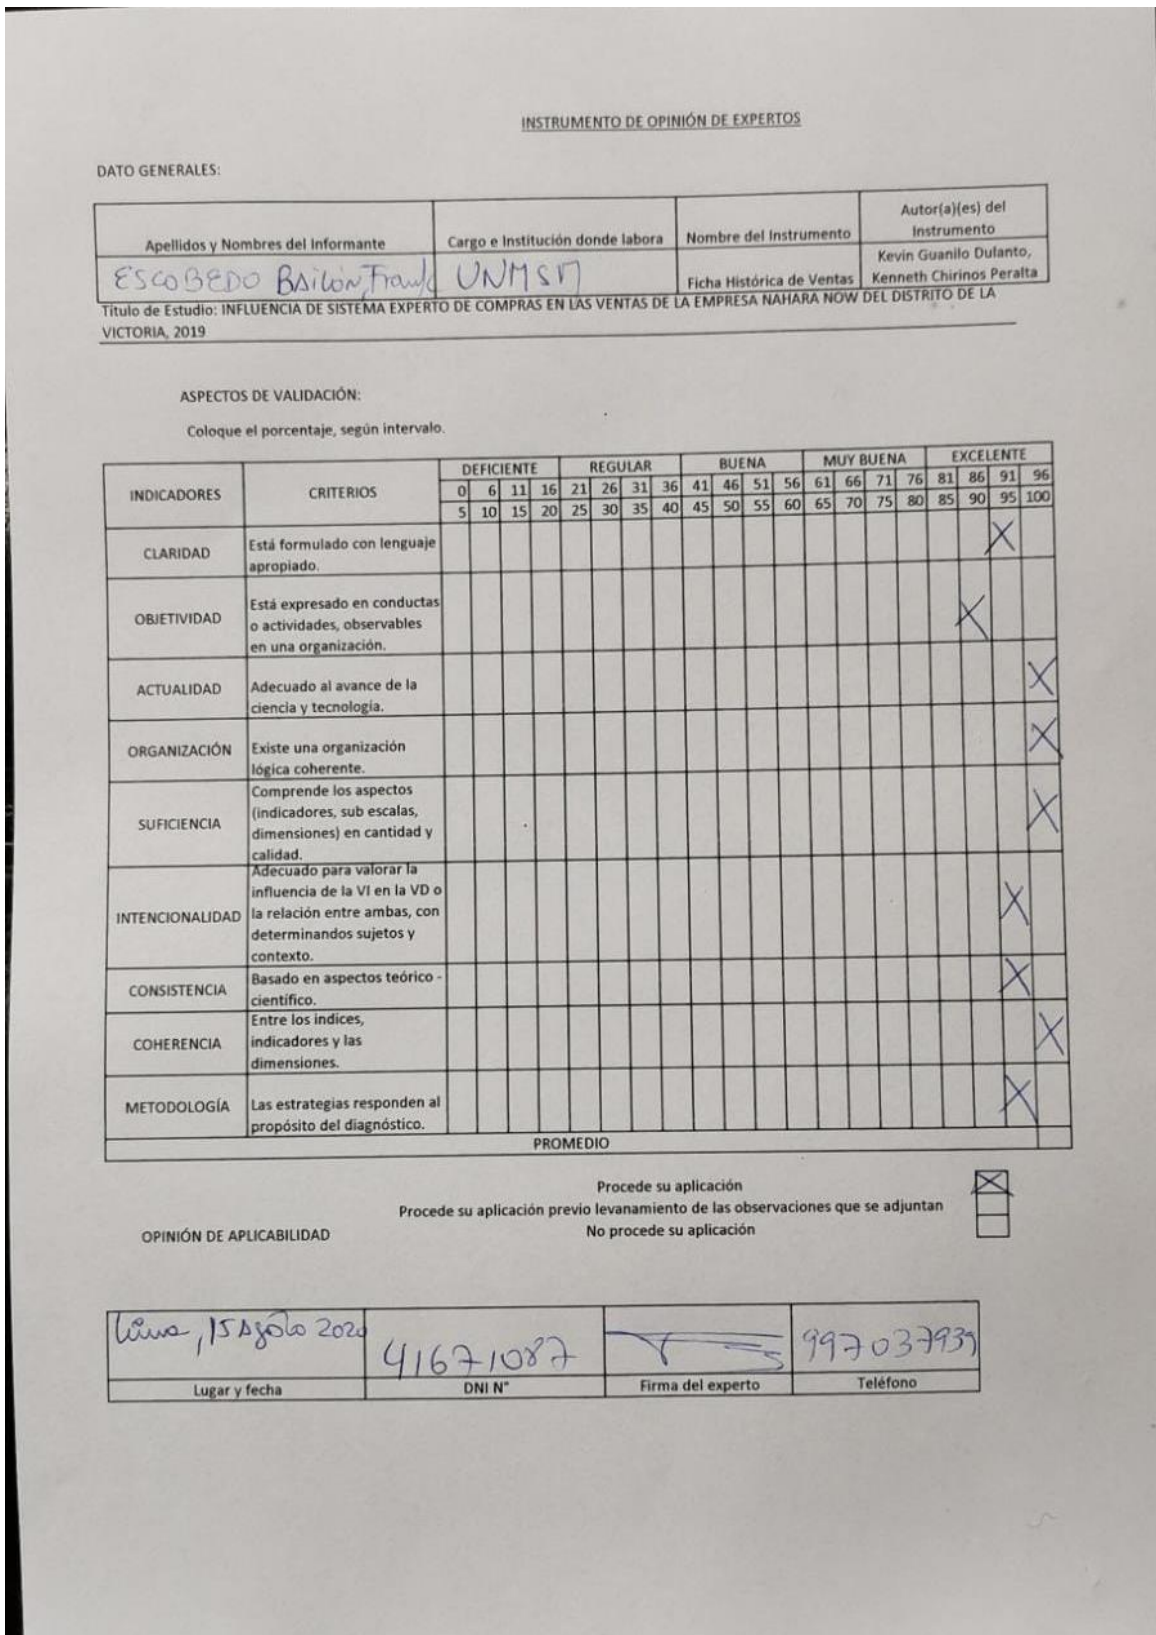 INSTRUMENTO DE OPINIÓN DE EXPERTOS
DATO GENERALES:
Apellidos y Nombres del Informante Cargo e Institución donde labora Nombre del Instrumento Autor(a)(es) del Instrumento
ESCOBEDO BAILÓN, Frank UNMSM Ficha Histórica de Ventas Kevin Guanilo Dulanto, Kenneth Chirinos Peralta
Título de Estudio: INFLUENCIA DE SISTEMA EXPERTO DE COMPRAS EN LAS VENTAS DE LA EMPRESA NAHARA NOW DEL DISTRITO DE LA
VICTORIA, 2019
ASPECTOS DE VALIDACIÓN:
Coloque el porcentaje, según intervalo.
INDICADORES CRITERIOS DEFICIENTE REGULAR BUENA MUY BUENA EXCELENTE
0 6 11 16 21 26 31 36 41 46 51 56 61 66 71 76 81 86 91 96
5 10 15 20 25 30 35 40 45 50 55 60 65 70 75 80 85 90 95 100
CLARIDAD Está formulado con lenguaje
apropiado. X
OBJETIVIDAD Está expresado en conductas
o actividades, observables X
en una organización.
ACTUALIDAD Adecuado al avance de la X
ciencia y tecnología.
ORGANIZACIÓN Existe una organización X
lógica coherente.
Comprende los aspectos
(indicadores, sub escalas,
SUFICIENCIA dimensiones) en cantidad y X
calidad.
Adecuado para valorar la
influencia de la VI en la VD o
INTENCIONALIDAD la relación entre ambas, con X
determinandos sujetos y
contexto.
CONSISTENCIA Basado en aspectos teórico - X
científico.
Entre los indices,
COHERENCIA indicadores y las X
dimensiones.
METODOLOGÍA Las estrategias responden al X
propósito del diagnóstico.
PROMEDIO
Procede su aplicación X
Procede su aplicación previo levanamiento de las observaciones que se adjuntan
OPINIÓN DE APLICABILIDAD No procede su aplicación
Lima, 15 Agosto 2020 41671087 997037939
Lugar y fecha DNI N° Firma del experto Teléfono